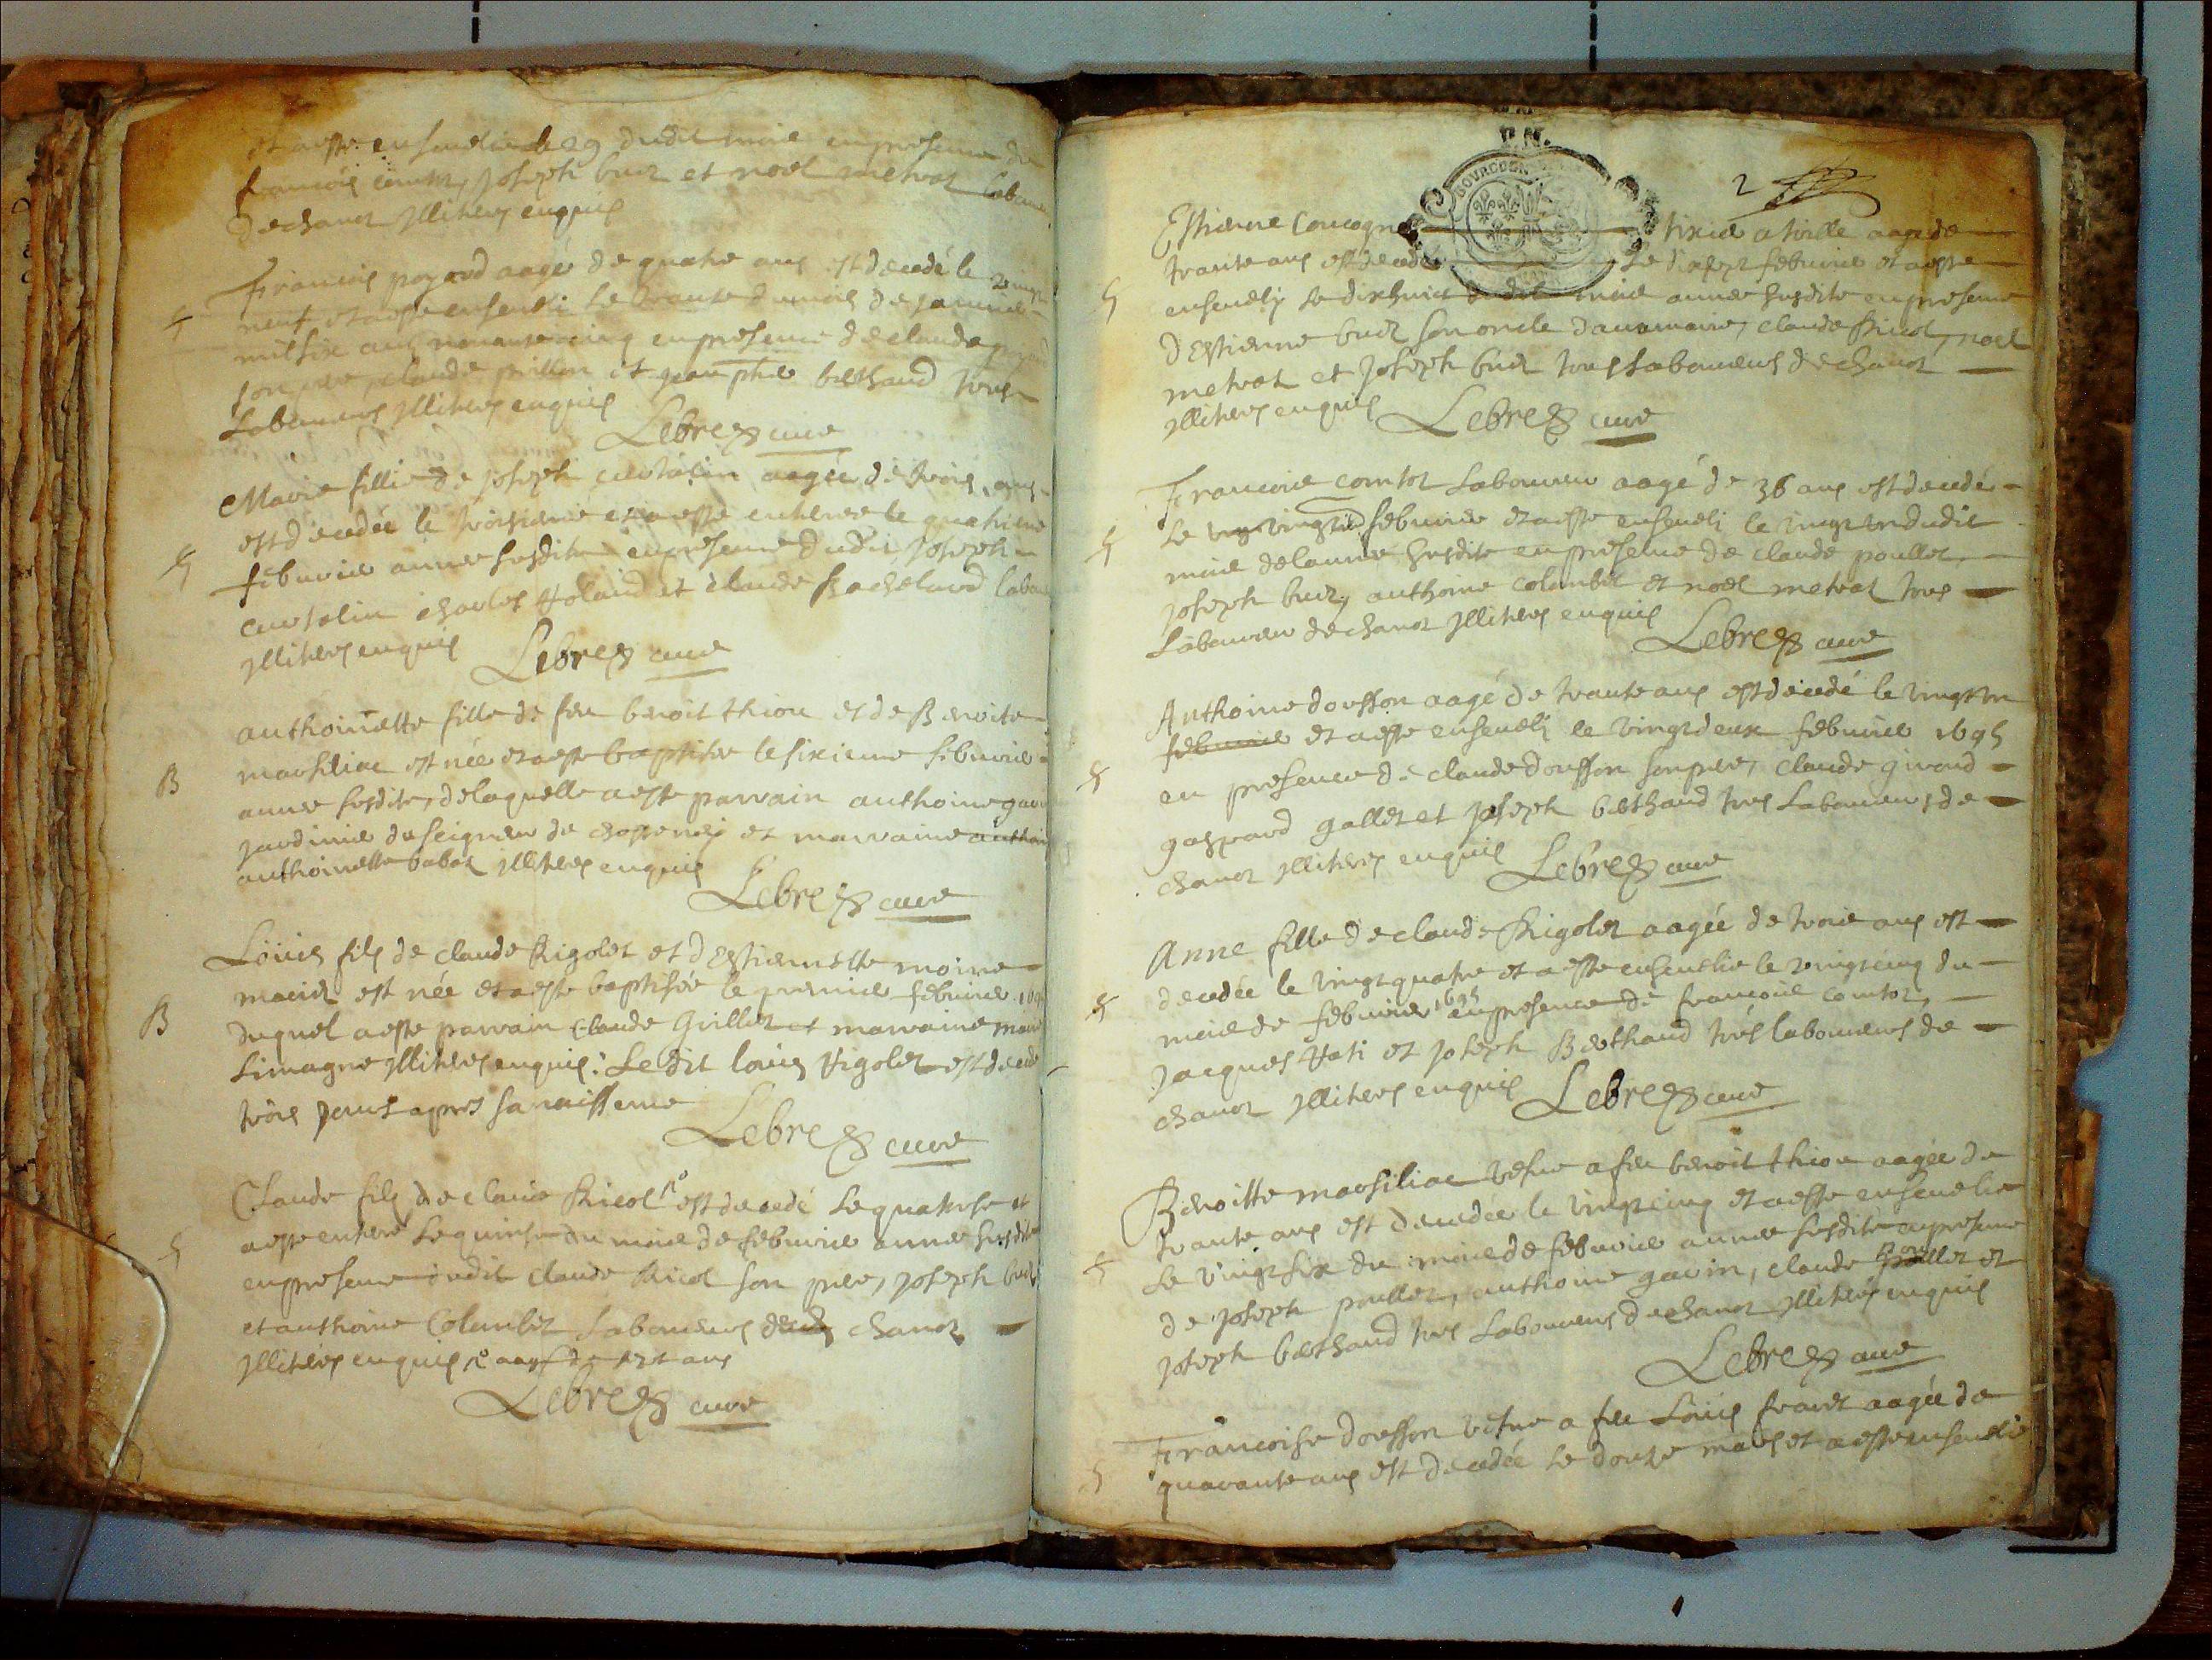 et a esté ensevelie le 29 dudit mois en presence de
francois comtet, Joseph buiz et noel metrat labour
de chanoz Illiteres enquis
Francois poyard aagé de quatre ans est decedé le vingt
neuf et a esté enseveli le trante du mois de janvier
mil six cens nonante cinq en presence de claude poyard
son pere, claude et berthaud tous
Laboureurs Illiteres enquis
Lebrez curé
S
Marie fillie de joseph curtalin aagée de trois ans
est decedée le troisieme et a esté enterree le quatrieme
febvrier annee susdite en presence dudit Joseph
curtalin charles et claude Bachelard labou
Illiteres enquis
Lebrez curé
S
anthoinette fille de feu benoit thion et de Benoite
marsiliac est née et a esté baptisée le sixieme febvrier
annee susdite, de laquelle a esté parrain anthoine gavin
jardinier du seigneur de et marraine anthoin
anthoinette babat Illiteres enquis
Lebrez curé
B
Louis fils de claude Rigolet et d'Estiennette moine
mariez est née et a esté baptisée le premier febvrier 169
duquel a esté parrain claude Grillet et marraine marie
Limagne Illiteres enquis: Ledit louis Rigolet est decedé
trois jours apres sa naissence
Lebrez curé
B
Claude fils de claude Ricol est decedé le quatorse et
a esté enterré le quinse du mois de febvrier annee susdite
en presence dudit claude Ricol son pere, joseph buiz
et anthoine Colombet Laboureurs chanoz
Illiteres enquis aagé de ans
Lebrez curé
S
BOURGOGN
2
Estienne Concogne tixier a toille aagé de
trante ans est decedé le dixsept febvrier et a esté
enseveli le dixhuict dudit mois annee susdite en presence
d'Estienne buiz son oncle claude Ricol, noel
metrat et joseph buiz tous laboureurs de chanoz
Illiteres enquis Lebrez curé
S
Francois comtet Laboureur aagé de 36 ans est decedé
le vingt febvrier et a esté enseveli le vingt un dudit
mois de lannee susdite en presence de claude poullet
joseph buiz, anthoine colombet et noel metrat tous
Laboureur de chanoz Illiteres enquis
Lebrez curé
S
Anthoine dousson aagé de trante ans est decedé le vingt un
febvrier et a esté enseveli le vingt deux febvrier 1695
en presence de claude dousson son pere, claude giroud
gaspard gallet et joseph berthaud tous Laboureurs de
chanoz Illiteres enquis Lebrez curé
S
Anne fille de claude Rigolet aagée de trois ans est
decedée le vingt quatre et a esté ensevelie le vingt cinq du
mois de febvrier 1695 en presence de francois comtet,
Jacques et joseph Berthaud tous laboureurs de
chanoz Illiteres enquis Lebrez curé
S
Benoitte marsiliac vefve a feu benoit thion aagée de
trante ans est decedée le vingt cinq et a esté ensevelie
le vingt six du mois de febvrier annee susdite en presence
de joseph poullet, anthoine gavin, claude poullet et
joseph berthaud tous Laboureurs de chanoz Illiteres enquis
Lebrez curé
S
Francoise dousson vefve a feu Louis aagée de
quarante ans est decedée le douze mars et a esté ensevelie
S